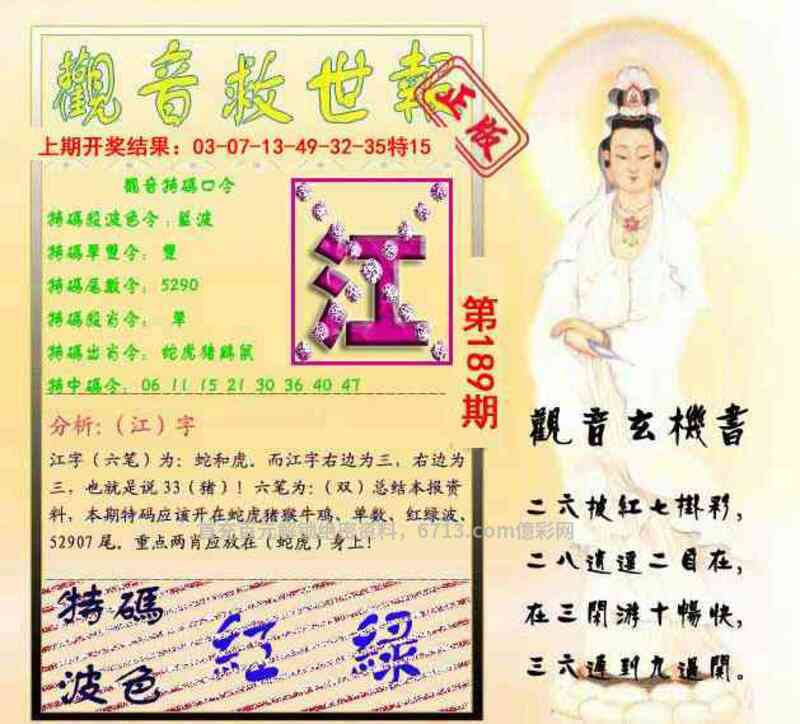 觀音救世報
正版
上期开奖结果：03-07-13-49-32-35特15
觀音特碼口令
特碼殺波色令：藍波
特碼單雙令：雙
特碼尾數令：5290
特碼殺肖令：單
特碼出肖令：蛇虎猪鷄鼠
特中碼令：06 11 15 21 30 36 40 47
江
第189期
分析:（江）字
江字（六笔）为：蛇和虎。而江字右边为三，右边为
三，也就是说33（猪）！六笔为：（双）总结本报资
料，本期特码应该开在蛇虎猪猴牛鸡、单数、红绿波、
52907尾。重点两肖应放在（蛇虎）身上！
6713.com億彩网
特碼
波色
紅 綠
觀音玄機書
二六披紅七掛彩，
二八逍遥二自在，
在三閑游十暢快，
三六運到九運開。